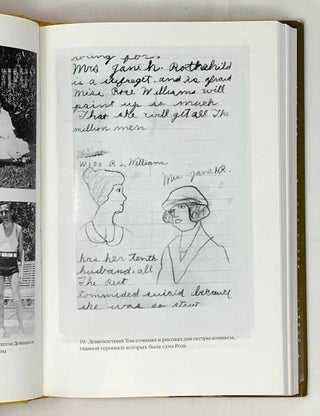 young for.
Mrs Jane h. Rothchild
is a sufraget. and is afraid
Miss Rose Williams will
paint up is much
That she will get all The
million men
Miss R L Williams
Mrs Jane H.R.
has her tenth
husband. all
The Rest
Commided suicid because
she was so strict
19. Девятилетний Том сочинял и рисовал для сестры комиксы,
главной героиней которых была сама Роза